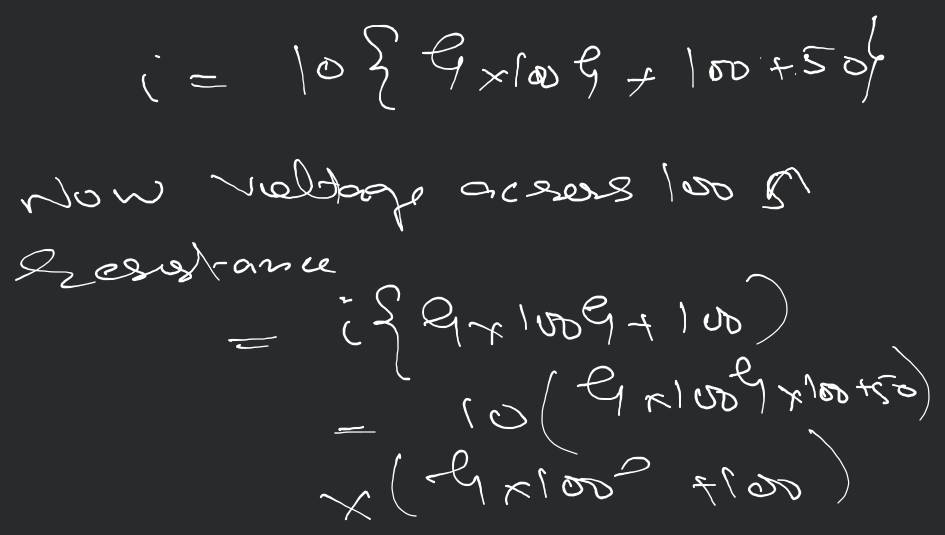 i = 10{ G x 100 G + 100 + 50}
Now voltage across 100 Ω
Resistance
= i{ G x 100 G + 100 )
= 10( G x 100 G x 100 + 50)
x ( G x 100 +100 )